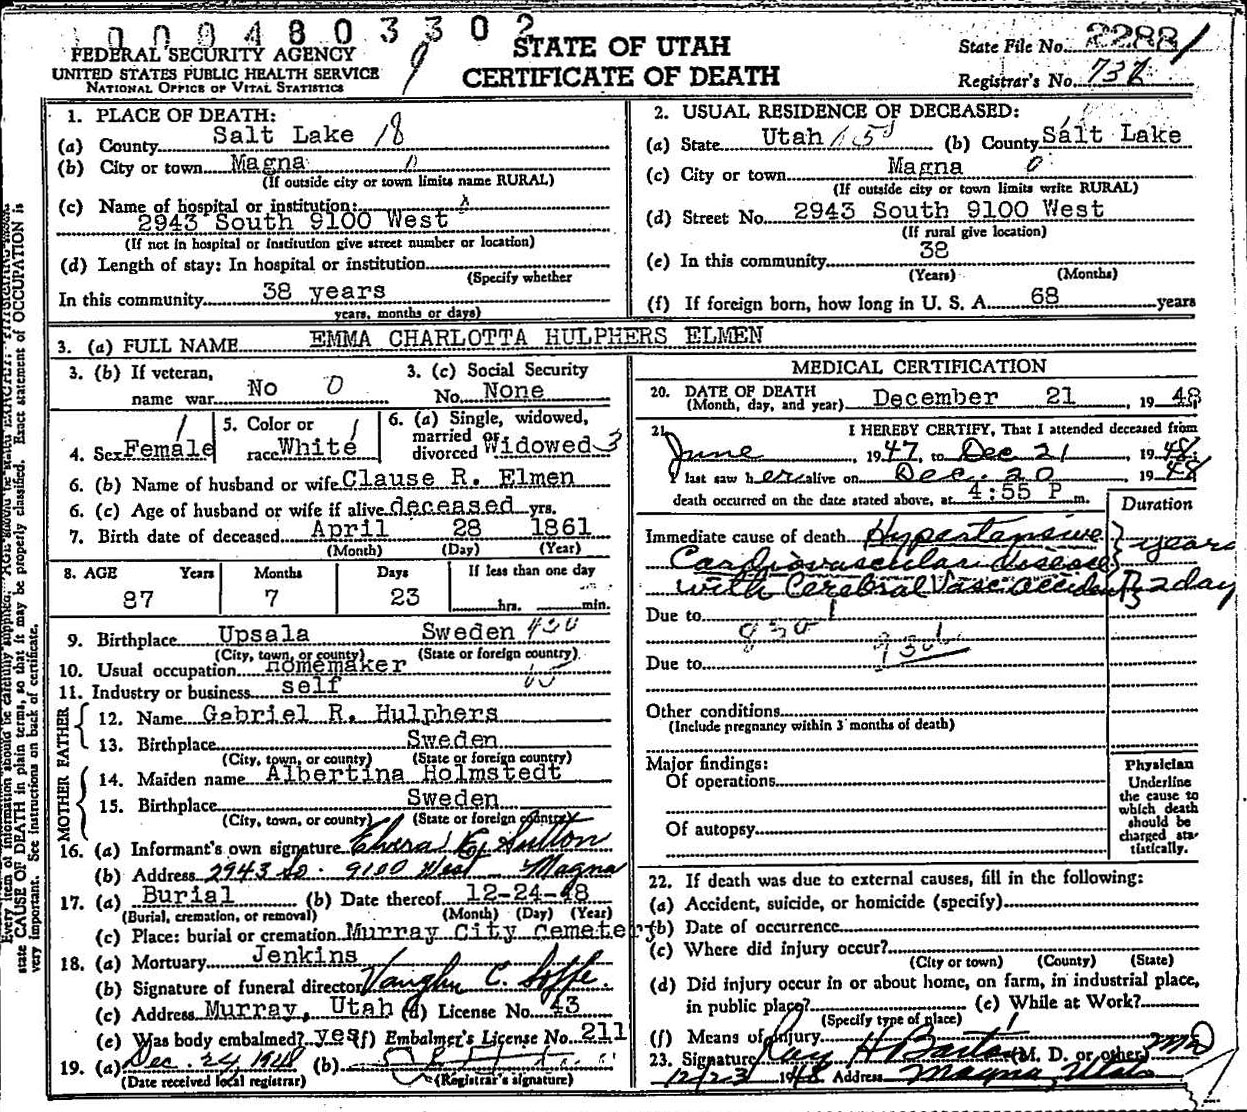 00094803302
FEDERAL SECURITY AGENCY
UNITED STATES PUBLIC HEALTH SERVICE
NATIONAL OFFICE OF VITAL STATISTICS
9
STATE OF UTAH
CERTIFICATE OF DEATH
State File No. 2288
Registrar's No. 732
1. PLACE OF DEATH:
(a) County Salt Lake 18
(b) City or town Magna 0
(If outside city or town limits name RURAL)
(c) Name of hospital or institution:
2943 South 9100 West
(If not in hospital or institution give street number or location)
(d) Length of stay: In hospital or institution
(Specify whether
In this community 38 years
years, months or days)
2. USUAL RESIDENCE OF DECEASED:
(a) State Utah (b) County Salt Lake
(c) City or town Magna 0
(If outside city or town limits write RURAL)
(d) Street No. 2943 South 9100 West
(If rural give location)
(e) In this community 38
(Years) (Months)
(f) If foreign born, how long in U. S. A. 68 years
3. (a) FULL NAME EMMA CHARLOTTA HULPHERS ELMEN
3. (b) If veteran, name war No 0
3. (c) Social Security No. None
4. Sex Female 1
5. Color or race White 1
6. (a) Single, widowed, married or divorced Widowed 3
6. (b) Name of husband or wife Clause R. Elmen
6. (c) Age of husband or wife if alive deceased yrs.
7. Birth date of deceased April 28 1861
(Month) (Day) (Year)
8. AGE Years Months Days If less than one day
87 7 23 hrs. min.
9. Birthplace Upsala Sweden
(City, town, or county) (State or foreign country)
10. Usual occupation homemaker
11. Industry or business self
FATHER
12. Name Gabriel R. Hulphers
13. Birthplace Sweden
(City, town, or county) (State or foreign country)
MOTHER
14. Maiden name Albertina Holmstedt
15. Birthplace Sweden
(City, town, or county) (State or foreign country)
16. (a) Informant's own signature E. Sutton
(b) Address 2943 So. 9100 West Magna
17. (a) Burial (b) Date thereof 12-24-48
(Burial, cremation, or removal) (Month) (Day) (Year)
(c) Place: burial or cremation Murray City Cemetery
18. (a) Mortuary Jenkins
(b) Signature of funeral director Vaughn C. Soffe.
(c) Address Murray, Utah (d) License No. 43
(e) Was body embalmed? yes (f) Embalmer's License No. 211
19. (a) Dec. 24, 1948 (b)
(Date received local registrar) (Registrar's signature)
MEDICAL CERTIFICATION
20. DATE OF DEATH
(Month, day, and year) December 21 , 19 48
21. I HEREBY CERTIFY, That I attended deceased from
June 1947, to Dec 21 , 1948.
I last saw her alive on Dec. 20 , 1948
death occurred on the date stated above, at 4:55 P m.
Duration
Immediate cause of death Hypertensive
Cardiovascular disease years
with Cerebral Vasc accident 2 day
Due to 830
Due to
Other conditions
(Include pregnancy within 3 months of death)
Major findings:
Of operations
Of autopsy
Physician
Underline
the cause to
which death
should be
charged sta-
tistically.
22. If death was due to external causes, fill in the following:
(a) Accident, suicide, or homicide (specify)
(b) Date of occurrence
(c) Where did injury occur?
(City or town) (County) (State)
(d) Did injury occur in or about home, on farm, in industrial place,
in public place? (e) While at Work?
(Specify type of place)
(f) Means of injury
23. Signature Ray H Barton (M. D. or other) MD
12/23 1948 Address Magna, Utah
Every item of information should be carefully supplied. AGE should be stated EXACTLY. PHYSICIANS should
state CAUSE OF DEATH in plain terms, so that it may be properly classified. Exact statement of OCCUPATION is
very important. See instructions on back of certificate.